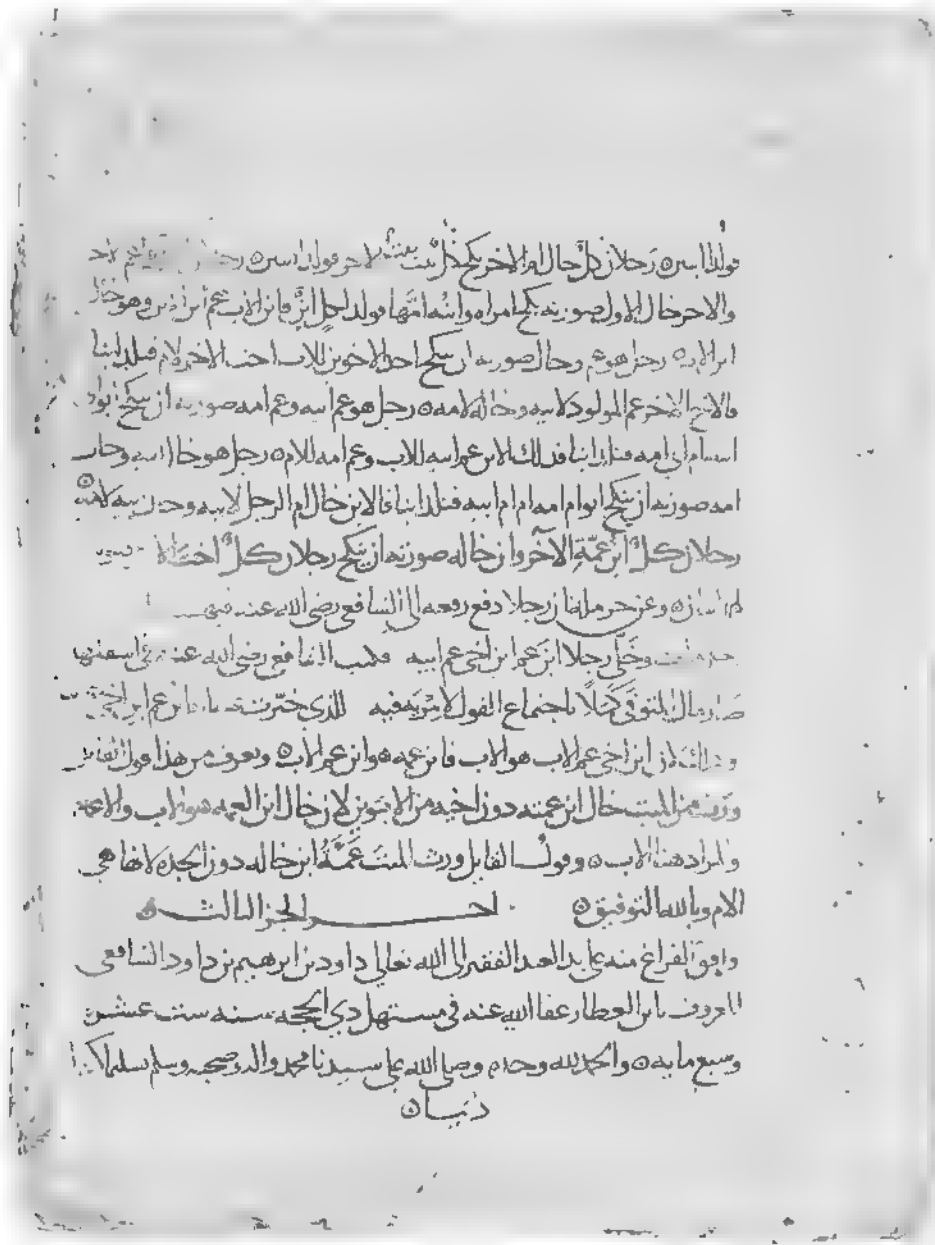 فولدا ابنين ٥ رجلان كل خال ام الاخر نكح كل بنت بنت الاخر فولدا ابنين ٥
والاخر خال الاول صورته نكح امراه وابنه امها فولد لكل ابن فابن الاب عم ابن الابن وهو خال
ابن الاب ٥ رجل هو عم وخال صورته ان ينكح احد الاخوين للاب اخت الاخر لام فتلد ابنا
فالاخ الاخر عم المولود لابيه وخاله لامه ٥ رجل هو عم ابيه وعم امه صورته ان ينكح ابو
ام ابي امه فتلد ابنا فذلك الابن عم ابيه للاب وعم امه للام ٥ رجل هو خال ابيه وخال
امه صورته ان ينكح ابو ام امه ام ام ابيه فتلد ابنا فالابن خال ام الرجل لابيه وخال ابيه لامه
رجلان كل ابن عمة الآخر وابن خاله صورته ان ينكح رجلان كل اخت الا
ابنان ٥ وعن حرمله ان رجلا دفع رقعه الى الشافعي رضي الله عنه فيها
وخلى رجلا ابن عم ابن اخي عم ابيه فكتب الشافعي رضي الله عنه في اسفلها
صار مال المتوفى كملا باجتماع القول لا مرية فيه للذي خبرت عنه ابن عم ابن اخي
وذلك لان ابن اخي عم الاب هو الاب فابن عمه هو ابن عم الاب ٥ ويعرف من هذا قول القائل
ورث من الميت خال ابن عمته دون اخيه من الابوين لان خال ابن العمه هو الاب والاعمام
والمراد هنا الاب ٥ وقول القايل ورث الميت عمة ابن خاله دون الجده لانها هي
الام وبالله التوفيق ٥ اخر الجز الثالث ٥
وافق الفراغ منه على يد العبد الفقير الى الله تعالى داود بن ابرهيم بن داود الشافعي
المعروف بابن العطار عفا الله عنه في مستهل ذي الحجه سنه ست عشر
وسبع مايه ٥ والحمد لله وحده وصلى الله على سيدنا محمد واله وصحبه وسلم تسليما